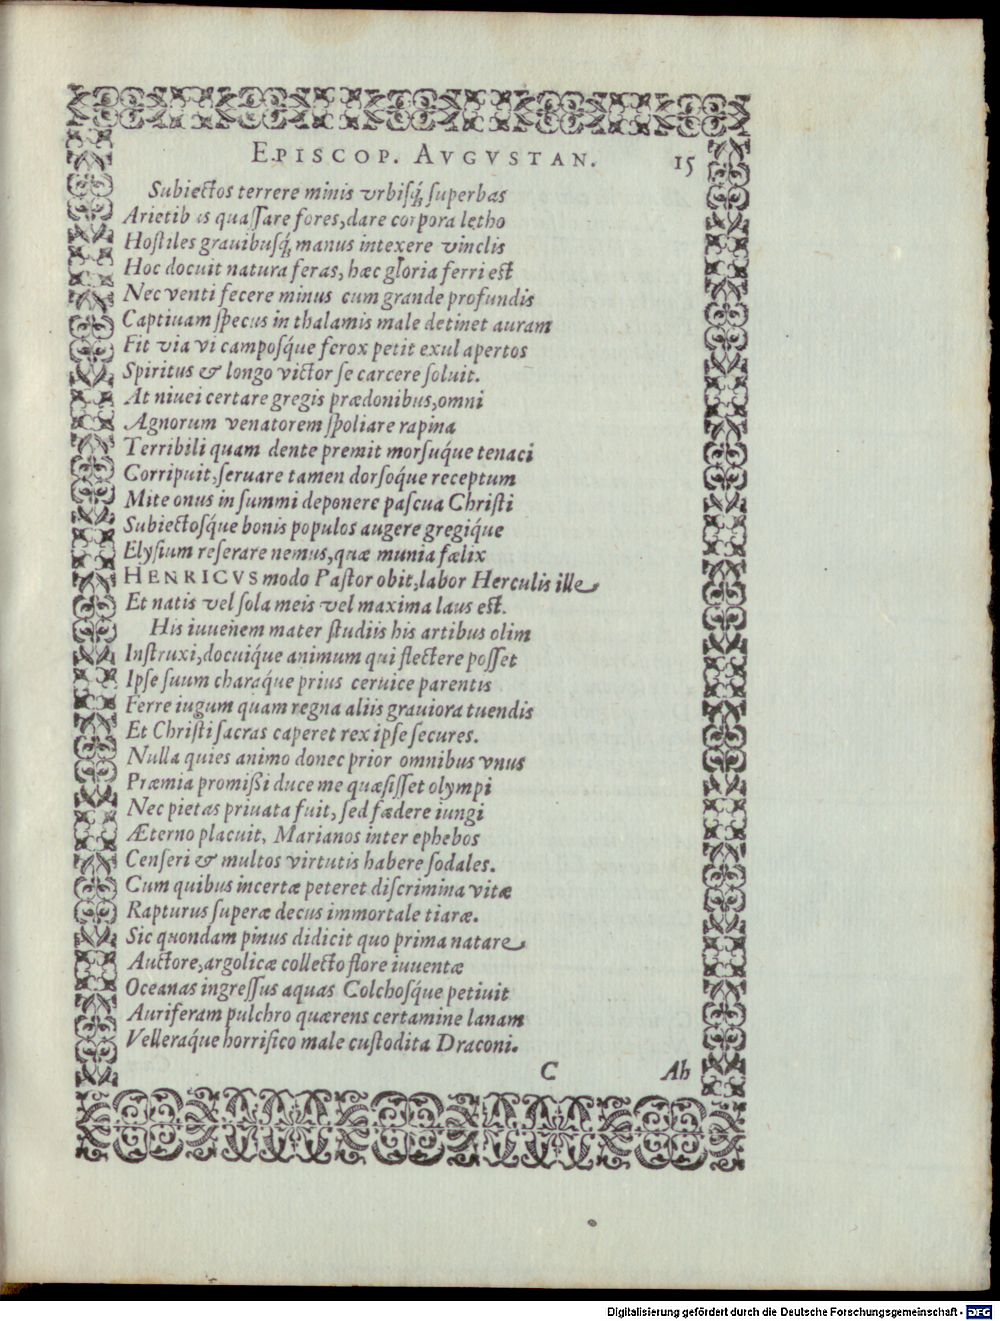 EPISCOP. AVGVSTAN. 15
Subiectos terrere minis vrbisq́; superbas
Arietibus quassare fores, dare corpora letho
Hostiles grauibusq́; manus intexere vinclis
Hoc docuit natura feras, hæc gloria ferri est
Nec venti fecere minus cum grande profundis
Captiuam specus in thalamis male detinet auram
Fit via vi camposq́ue ferox petit exul apertos
Spiritus & longo victor se carcere soluit.
At niuei certare gregis prædonibus, omni
Agnorum venatorem spoliare rapina
Terribili quam dente premit morsuq́ue tenaci
Corripuit, seruare tamen dorsoq́ue receptum
Mite onus in summi deponere pascua Christi
Subiectosq́ue bonis populos augere gregiq́ue
Elysium reserare nemus, quæ munia fælix
HENRICVS modo Pastor obit, labor Herculis ille
Et natis vel sola meis vel maxima laus est.
His iuuenem mater studiis his artibus olim
Instruxi, docuiq́ue animum qui flectere posset
Ipse suum charaq́ue prius ceruice parentis
Ferre iugum quam regna aliis grauiora tuendis
Et Christi sacras caperet rex ipse secures.
Nulla quies animo donec prior omnibus vnus
Præmia promißi duce me quæsisset olympi
Nec pietas priuata fuit, sed fædere iungi
Æterno placuit, Marianos inter ephebos
Censeri & multos virtutis habere sodales.
Cum quibus incertæ peteret discrimina vitæ
Rapturus superæ decus immortale tiaræ.
Sic quondam pinus didicit quo prima natare
Auctore, argolicæ collecto flore iuuentæ
Oceanas ingressus aquas Colchosq́ue petiuit
Auriferam pulchro quærens certamine lanam
Velleraq́ue horrifico male custodita Draconi.
C Ah
Digitalisierung gefördert durch die Deutsche Forschungsgemeinschaft - DFG